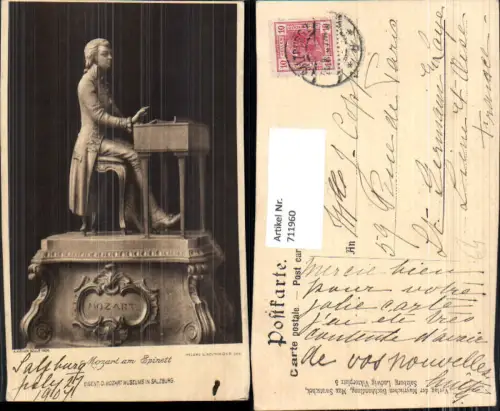 MOZART
Mozart am Spinett
EIGENT. D. MOZART MUSEUMS IN SALZBURG.
Salzburg
July 27
1907
Artikel Nr.
711960
10
10
Postkarte.
Carte postale – Post card
An
Mlle J. Cop
59 Rue de Paris
St Germain en Laye
Seine et Oise
France
Merci bien
pour votre
jolie carte
j'ai été très
contente d'avoir
de vos nouvelles
Verlag der Mayrischen Buchhandlung, Max Swatschek,
Salzburg, Ludwig Viktorplatz 5